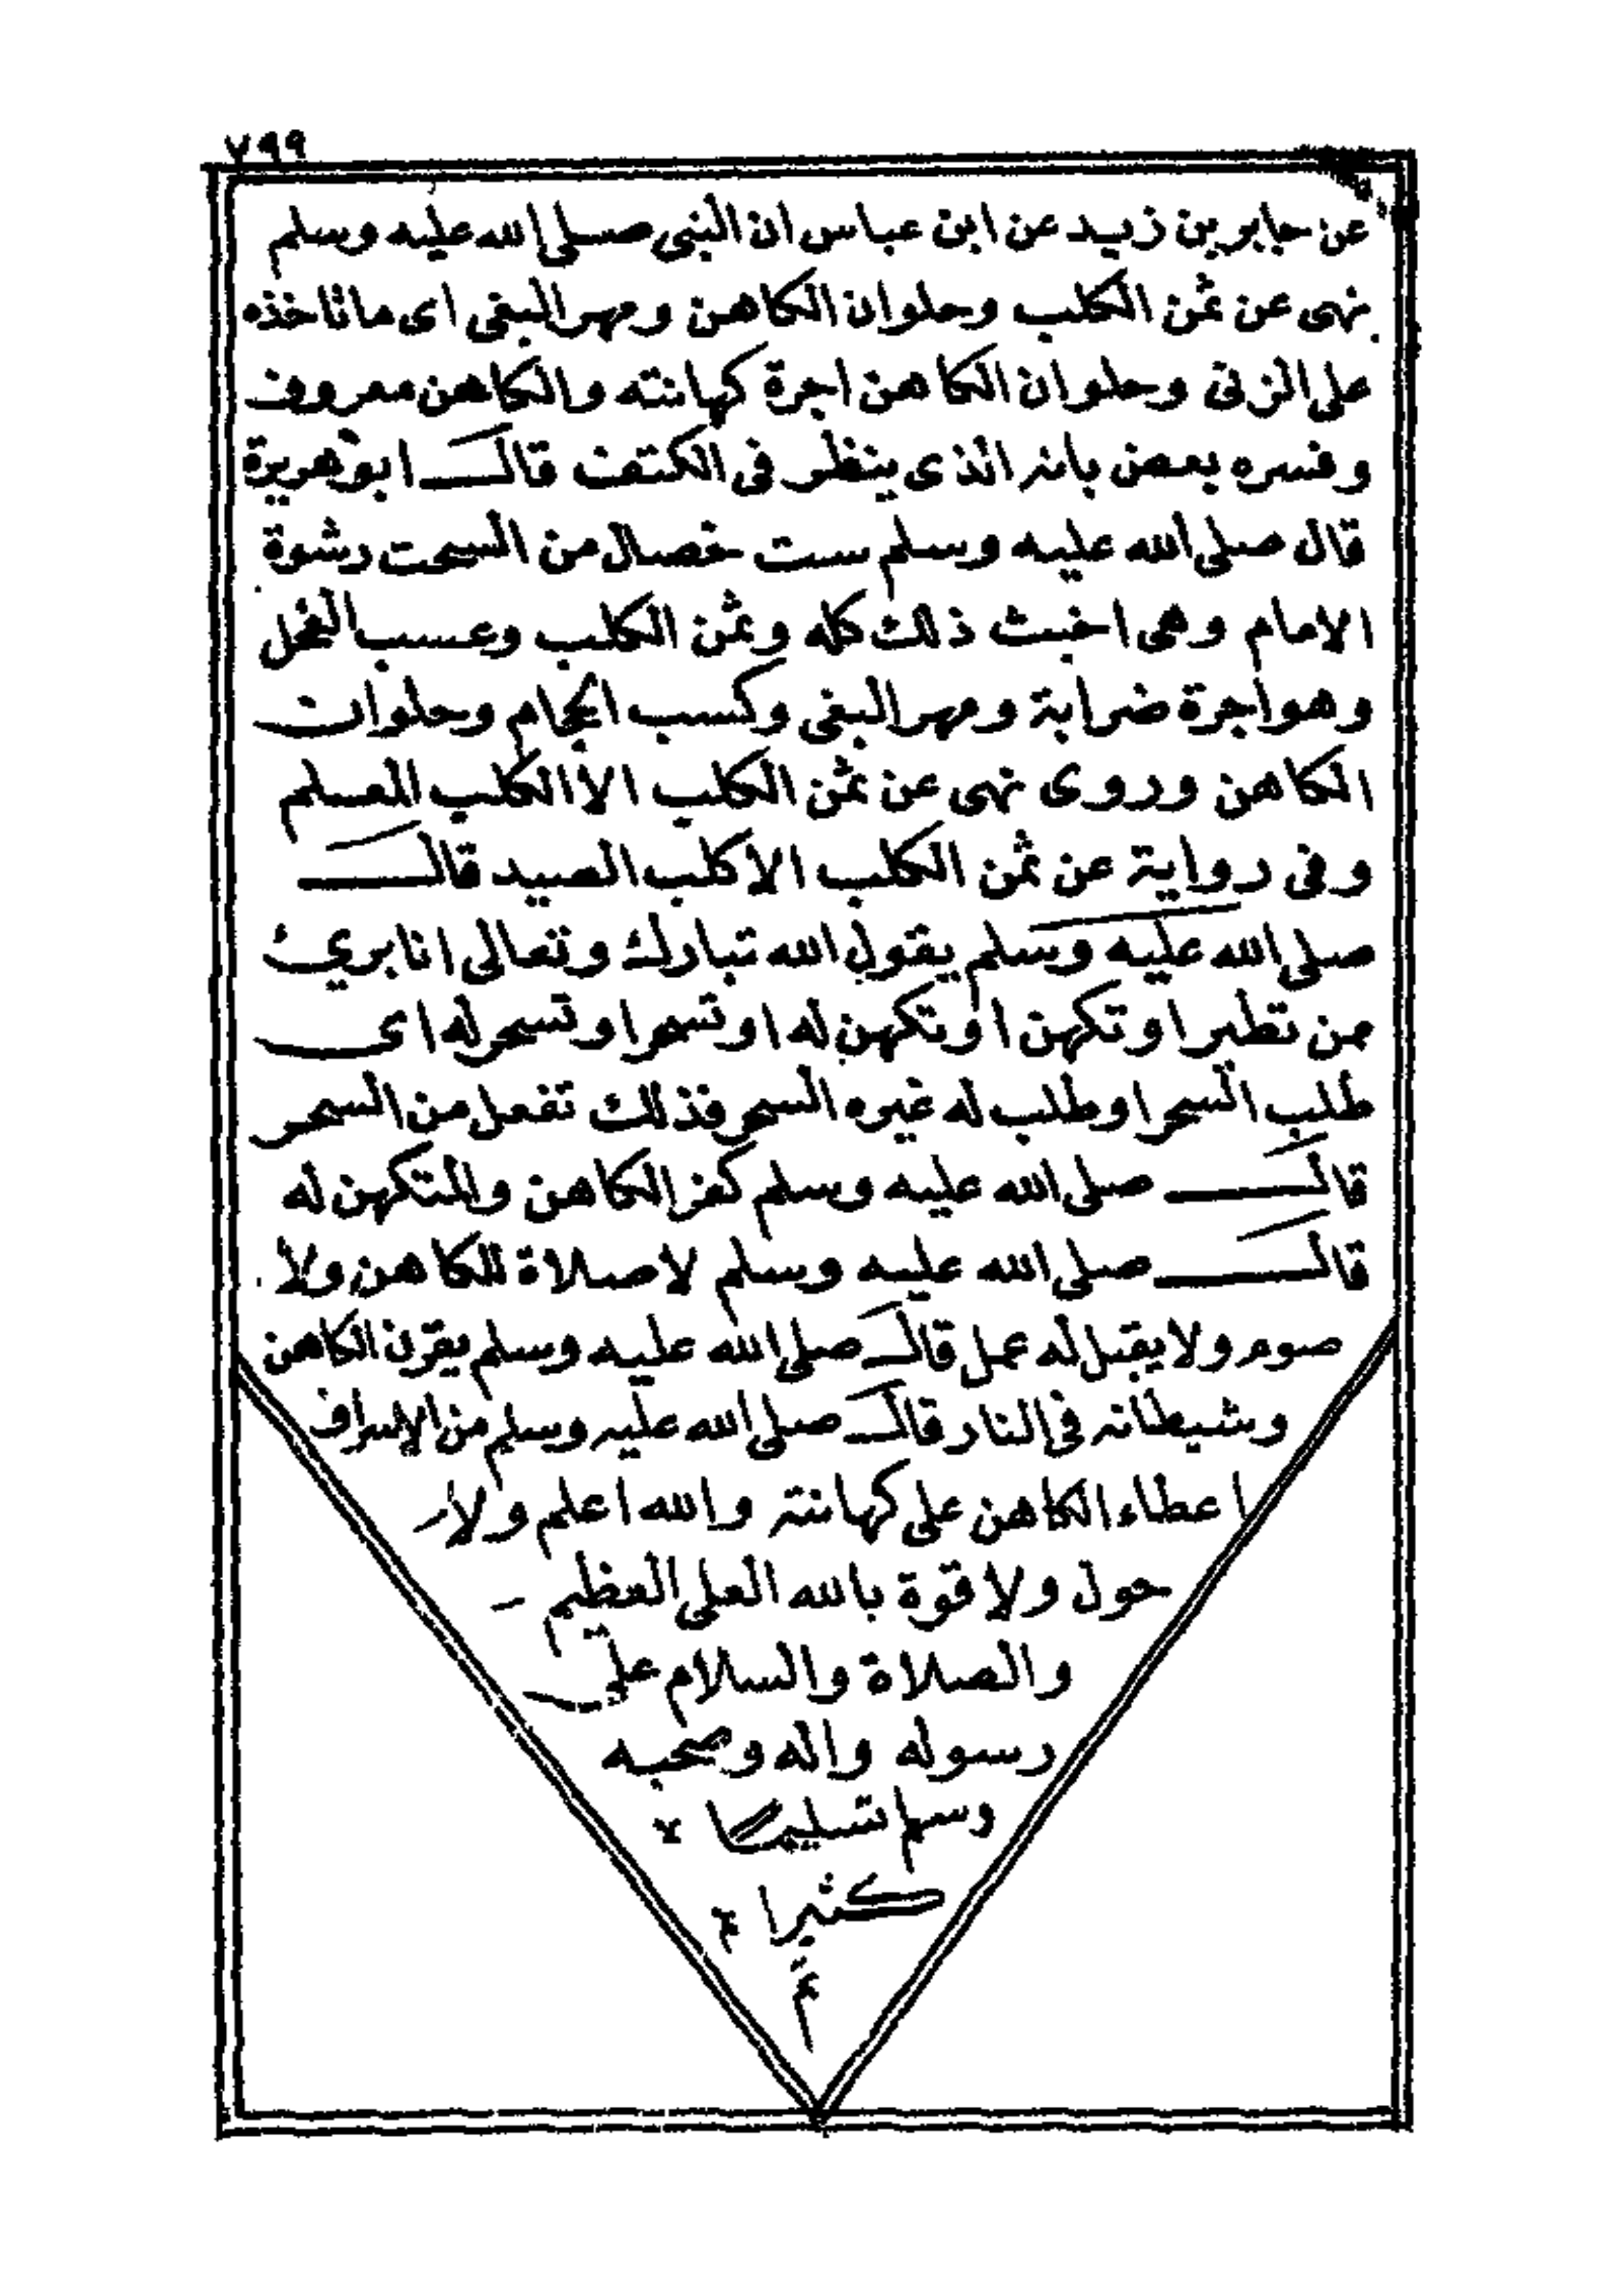 ٧٩٩
عن جابر بن زيد عن ابن عباس ان النبى صلى الله عليه وسلم
نهى عن ثمن الكلب وحلوان الكاهن ومهر البغى اى ما تاخذه
على الزنى وحلوان الكاهن اجرة كهانته والكاهن معروف
وفسره بعض بانه الذى ينظر فى الكتف قال ابو هريرة
قال صلى الله عليه وسلم ست خصال من السحت رشوة
الامام وهى اخبث ذلك كله وثمن الكلب وعسب الفحل
وهو اجرة ضرابة ومهر البغى وكسب الحجام وحلوان
الكاهن وروى نهى عن ثمن الكلب الا الكلب المعلم
وفى رواية عن ثمن الكلب الا كلب الصيد قال
صلى الله عليه وسلم يقول الله تبارك وتعالى انا برئ
ممن تطير او تكهن او تكهن له او تسحر او تسحر له اى
طلب السحر او طلب له غيره السحر فذلك تفعل من السحر
قال صلى الله عليه وسلم كفر الكاهن والمتكهن له
قال صلى الله عليه وسلم لا صلاة للكاهن ولا
صوم ولا يقبل له عمل قال صلى الله عليه وسلم يقرن الكاهن
وشيطانه فى النار قال صلى الله عليه وسلم من الاسراف
اعطاء الكاهن على كهانته والله اعلم ولا
حول ولا قوة بالله العلى العظيم
والصلاة والسلام على
رسوله واله وصحبه
وسلم تسليما
كثيرا